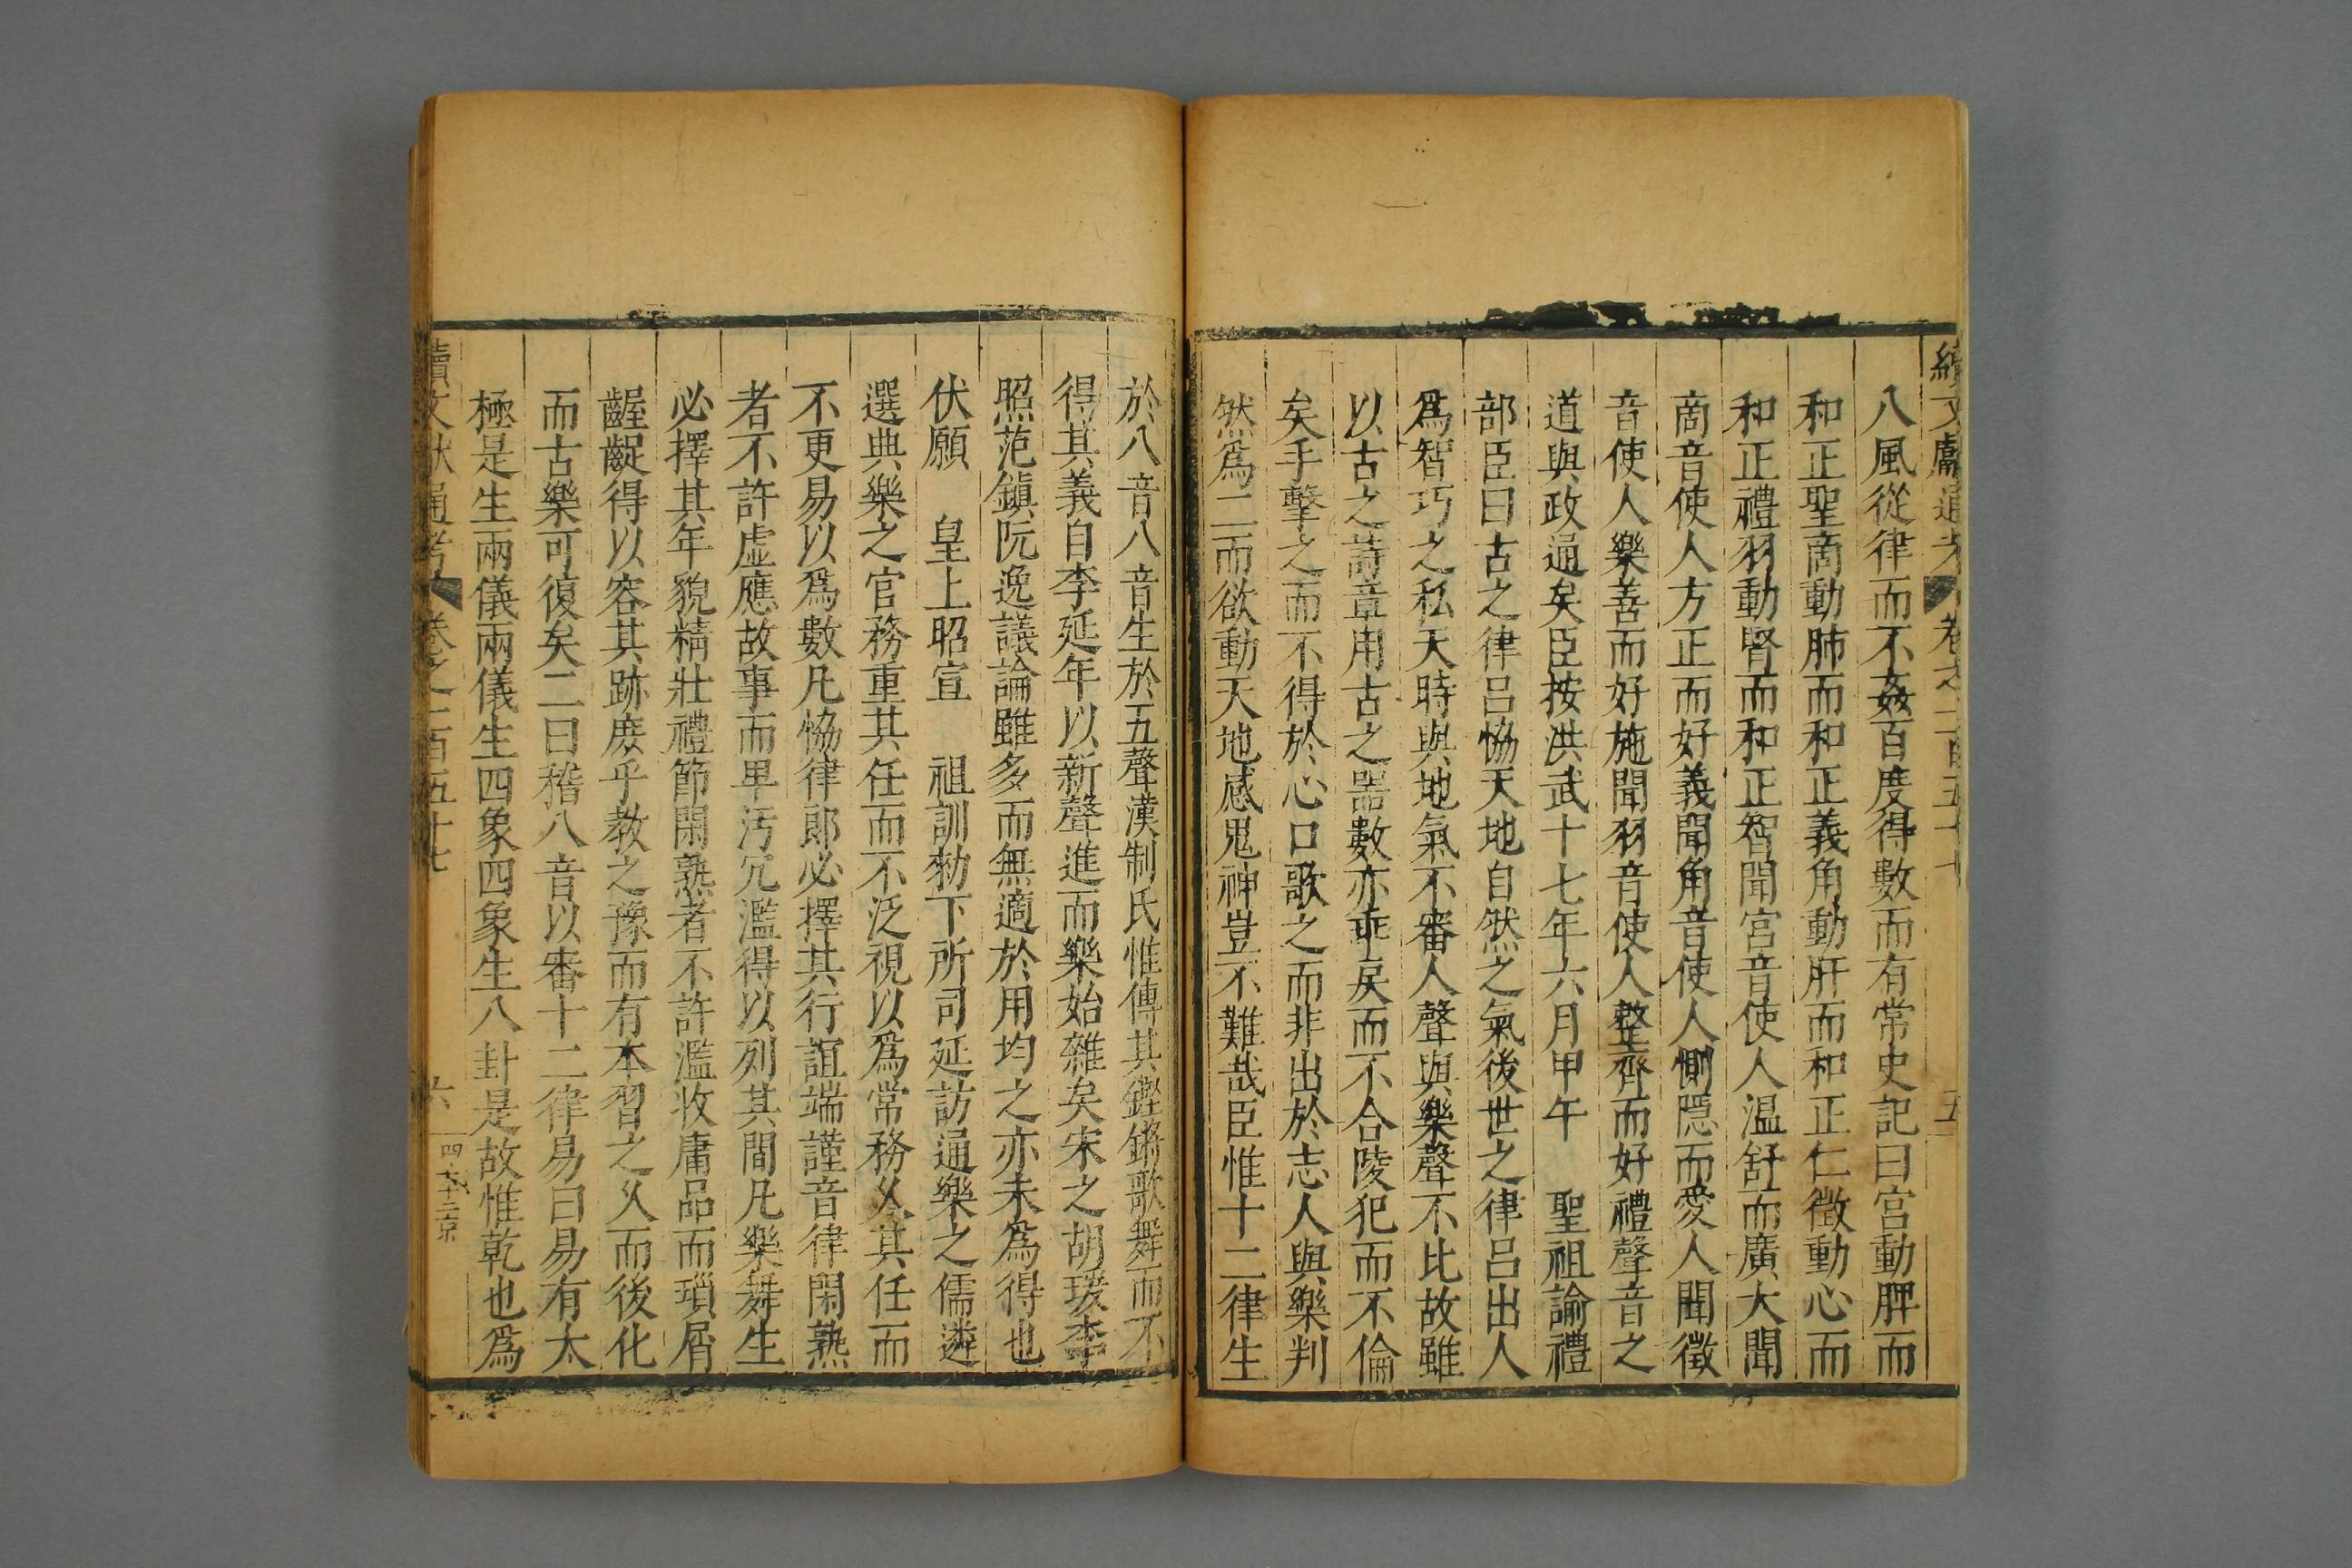 續文獻通考 卷之一百五十七 五
八風從律而不姦百度得數而有常史記曰宫動脾而
和正聖商動肺而和正義角動肝而和正仁徵動心而
和正禮羽動腎而和正智聞宫音使人温舒而廣大聞
商音使人方正而好義聞角音使人惻隠而愛人聞徵
音使人樂善而好施聞羽音使人整齊而好禮聲音之
道與政通矣臣按洪武十七年六月甲午 聖祖諭禮
部臣曰古之律呂恊天地自然之氣後世之律呂出人
爲智巧之私天時與地氣不審人聲與樂聲不比故雖
以古之詩章用古之噐數亦乖戾而不合陵犯而不倫
矣手擊之而不得於心口歌之而非出於志人與樂判
然爲二而欲動天地感鬼神豈不難哉臣惟十二律生
於八音八音生於五聲漢制氏惟傳其鏗鏘歌舞而不
得其義自李延年以新聲進而樂始雜矣宋之胡瑗李
照范鎮阮逸議論雖多而無適於用均之亦未爲得也
伏願 皇上昭宣 祖訓勑下所司延訪通樂之儒遴
選典樂之官務重其任而不泛視以爲常務久其任而
不更易以爲數凡恊律郎必擇其行誼端謹音律閑熟
者不許虚應故事而卑汚冗濫得以列其間凡樂舞生
必擇其年貌精壯禮節閑熟者不許濫收庸品而瑣屑
齷齪得以容其跡庻乎教之豫而有本習之久而後化
而古樂可復矣二曰稽八音以審十二律易曰易有太
極是生兩儀兩儀生四象四象生八卦是故惟乾也爲
續文獻通考 卷之一百五十七 六